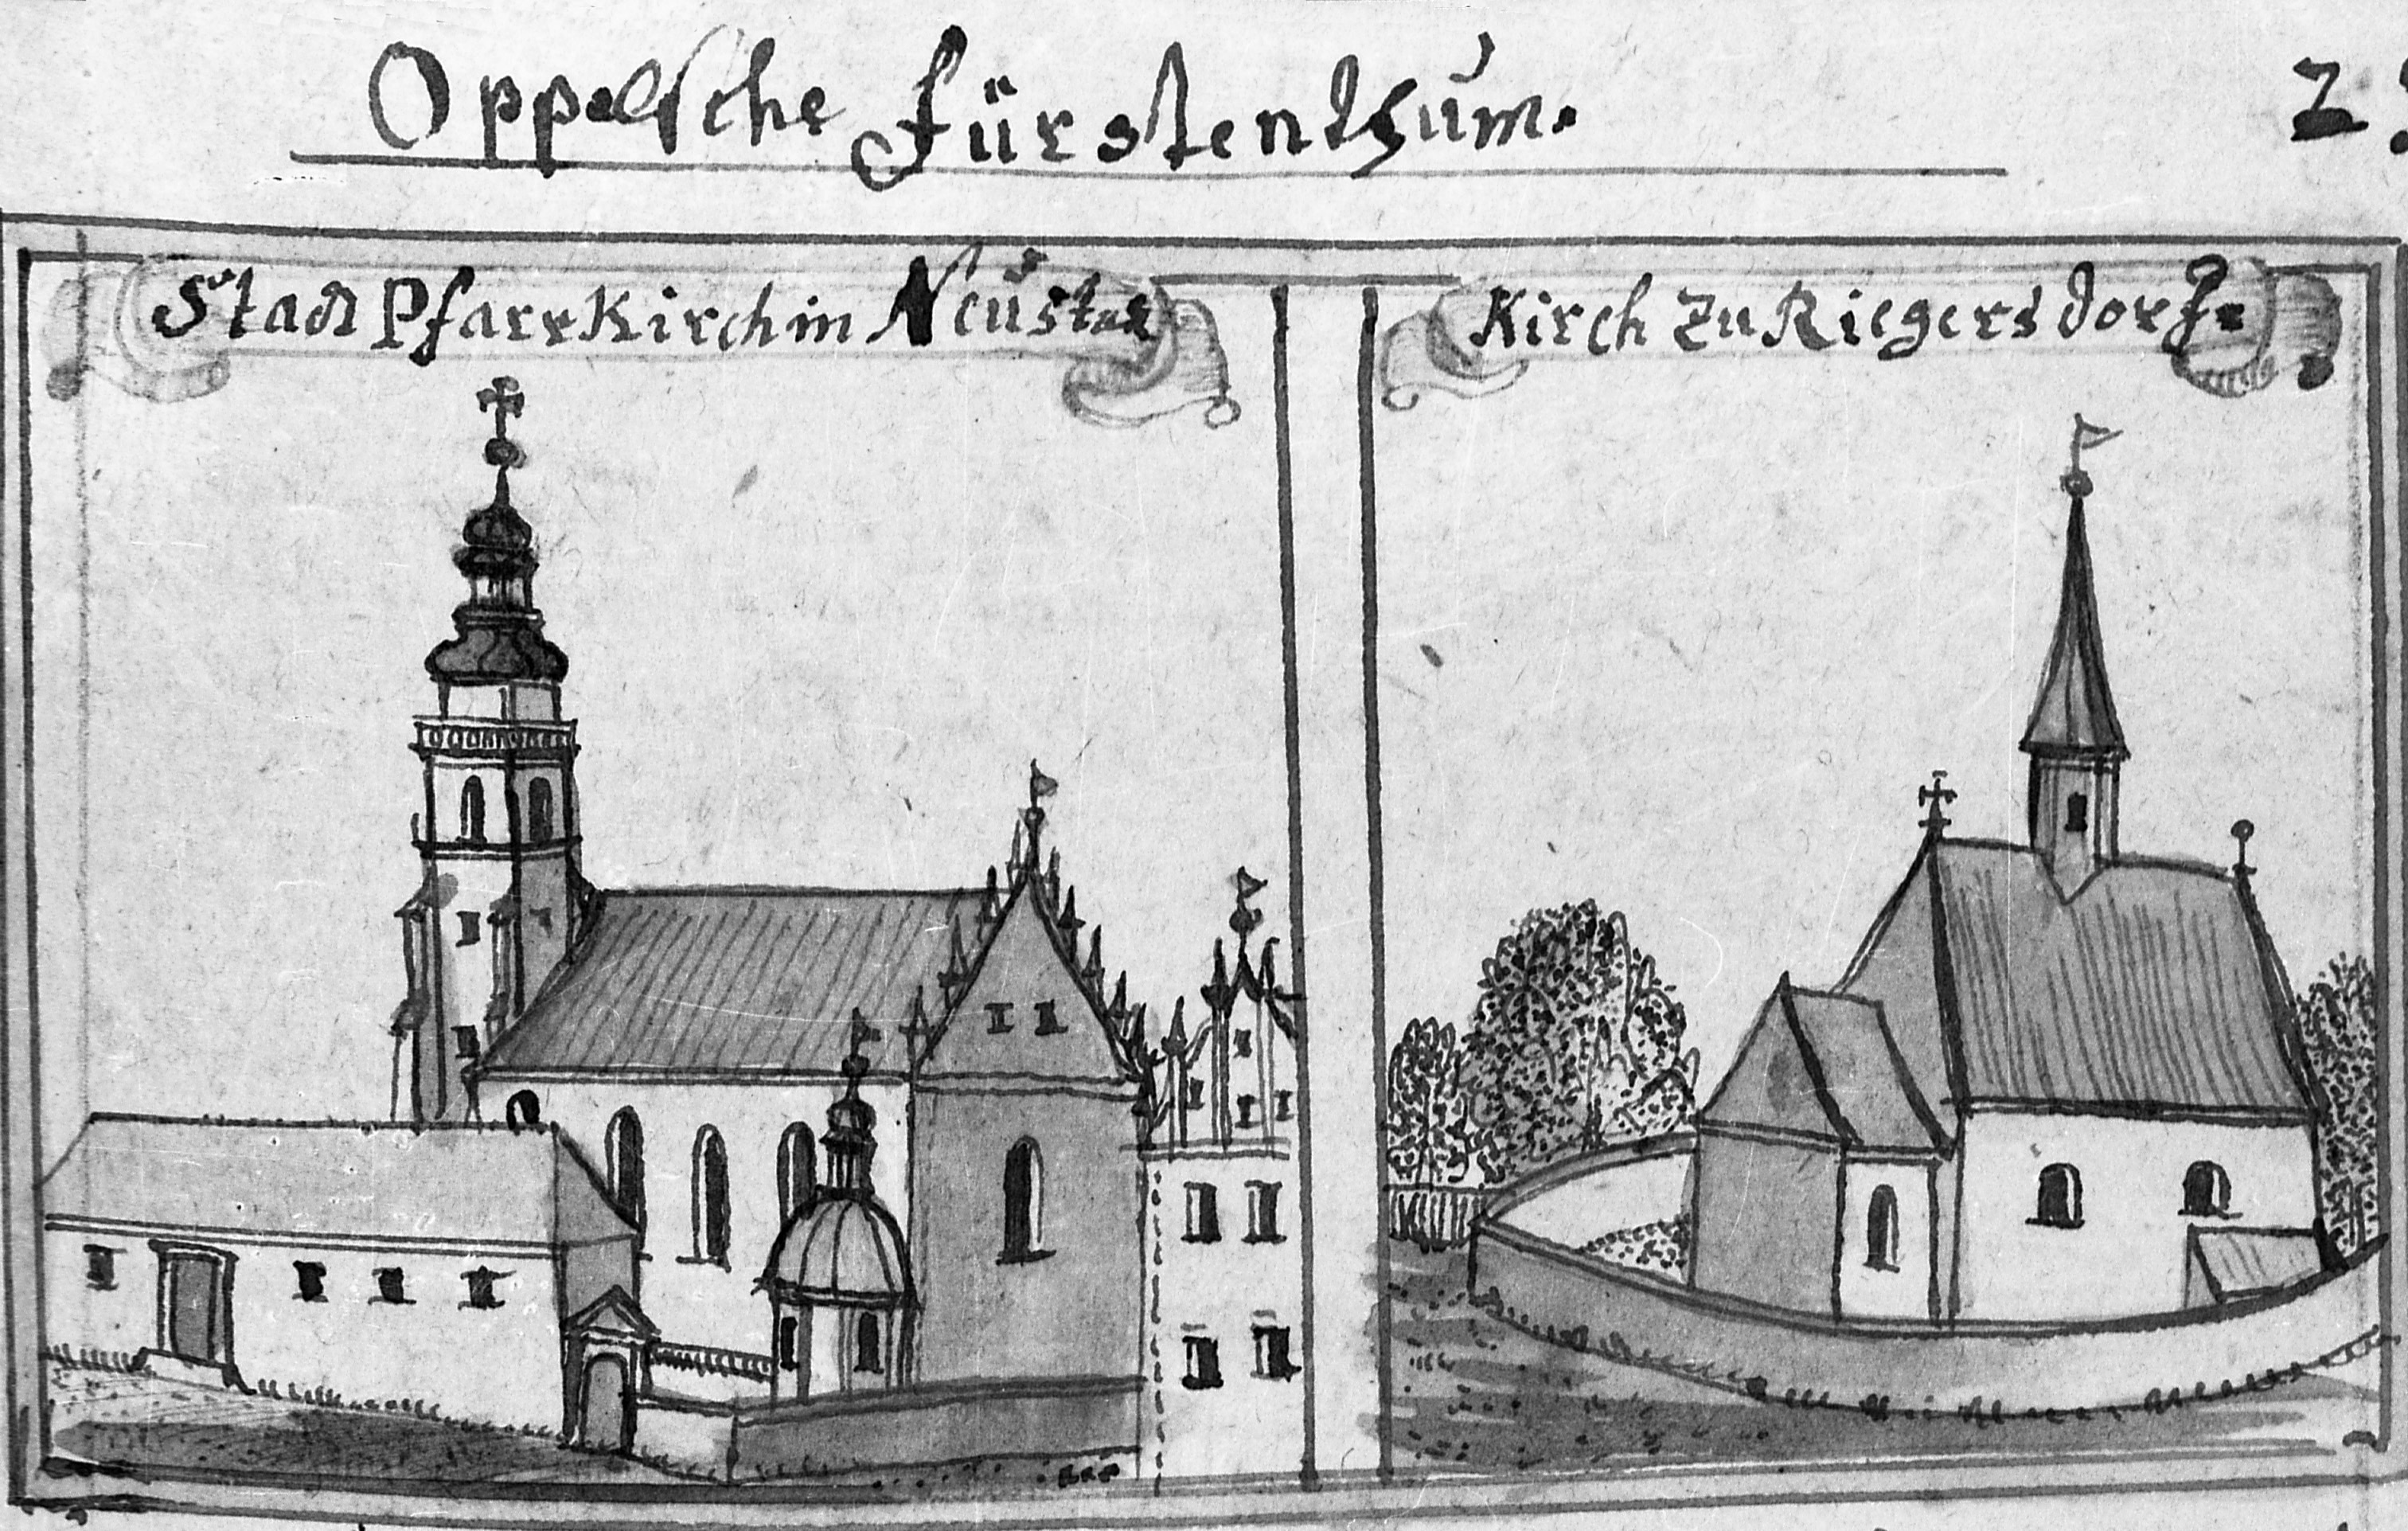 Oppelsche Fürstenthum.
Stadt Pfarr Kirch in Neüstat
Kirch zu Riegersdorf.